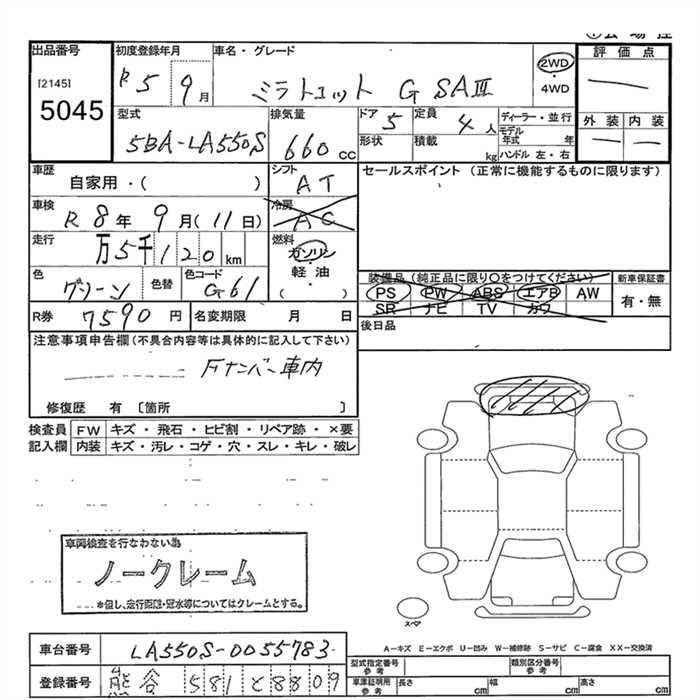 出品番号
[2145]
5045
初度登録年月
R5 9月
車名・グレード
ミラトコット G SAⅢ
2WD
・
4WD
評価点
外装 内装
型式
5BA-LA550S
排気量
660 cc
ドア 5
定員 4人
形状
積載 kg
ディーラー・並行
モデル年式 年
ハンドル 左・右
車歴
自家用・( )
シフト
AT
セールスポイント (正常に機能するものに限ります)
車検
R 8年 9月(11日)
冷房
AC
走行
万5千120km
燃料
ガソリン
・
軽油
( ・ )
色
グリーン
色替
色コード
G61
装備品(純正品に限り○をつけてください)
PS PW ABS エアB AW
SR ナビ TV カワ
新車保証書
有・無
R券 7590円
名変期限 月 日
後日品
注意事項申告欄(不具合内容等は具体的に記入して下さい)
Fナンバー車内
修復歴 有 [箇所 ]
検査員記入欄
FW キズ・飛石・ヒビ割・リペア跡・×要
内装 キズ・汚レ・コゲ・穴・スレ・キレ・破レ
車両検査を行なわない為
ノークレーム
*但し、走行距離・冠水等についてはクレームとする。
スペア
A－キズ E－エクボ U－凹み W－補修跡 S－サビ C－腐食 XX－交換済
車台番号 LA550S-0055783
登録番号 熊谷 581 と 8809
型式指定番号 参考
類別区分番号 参考
車庫証明用 参考
長さ cm
幅 cm
高さ cm